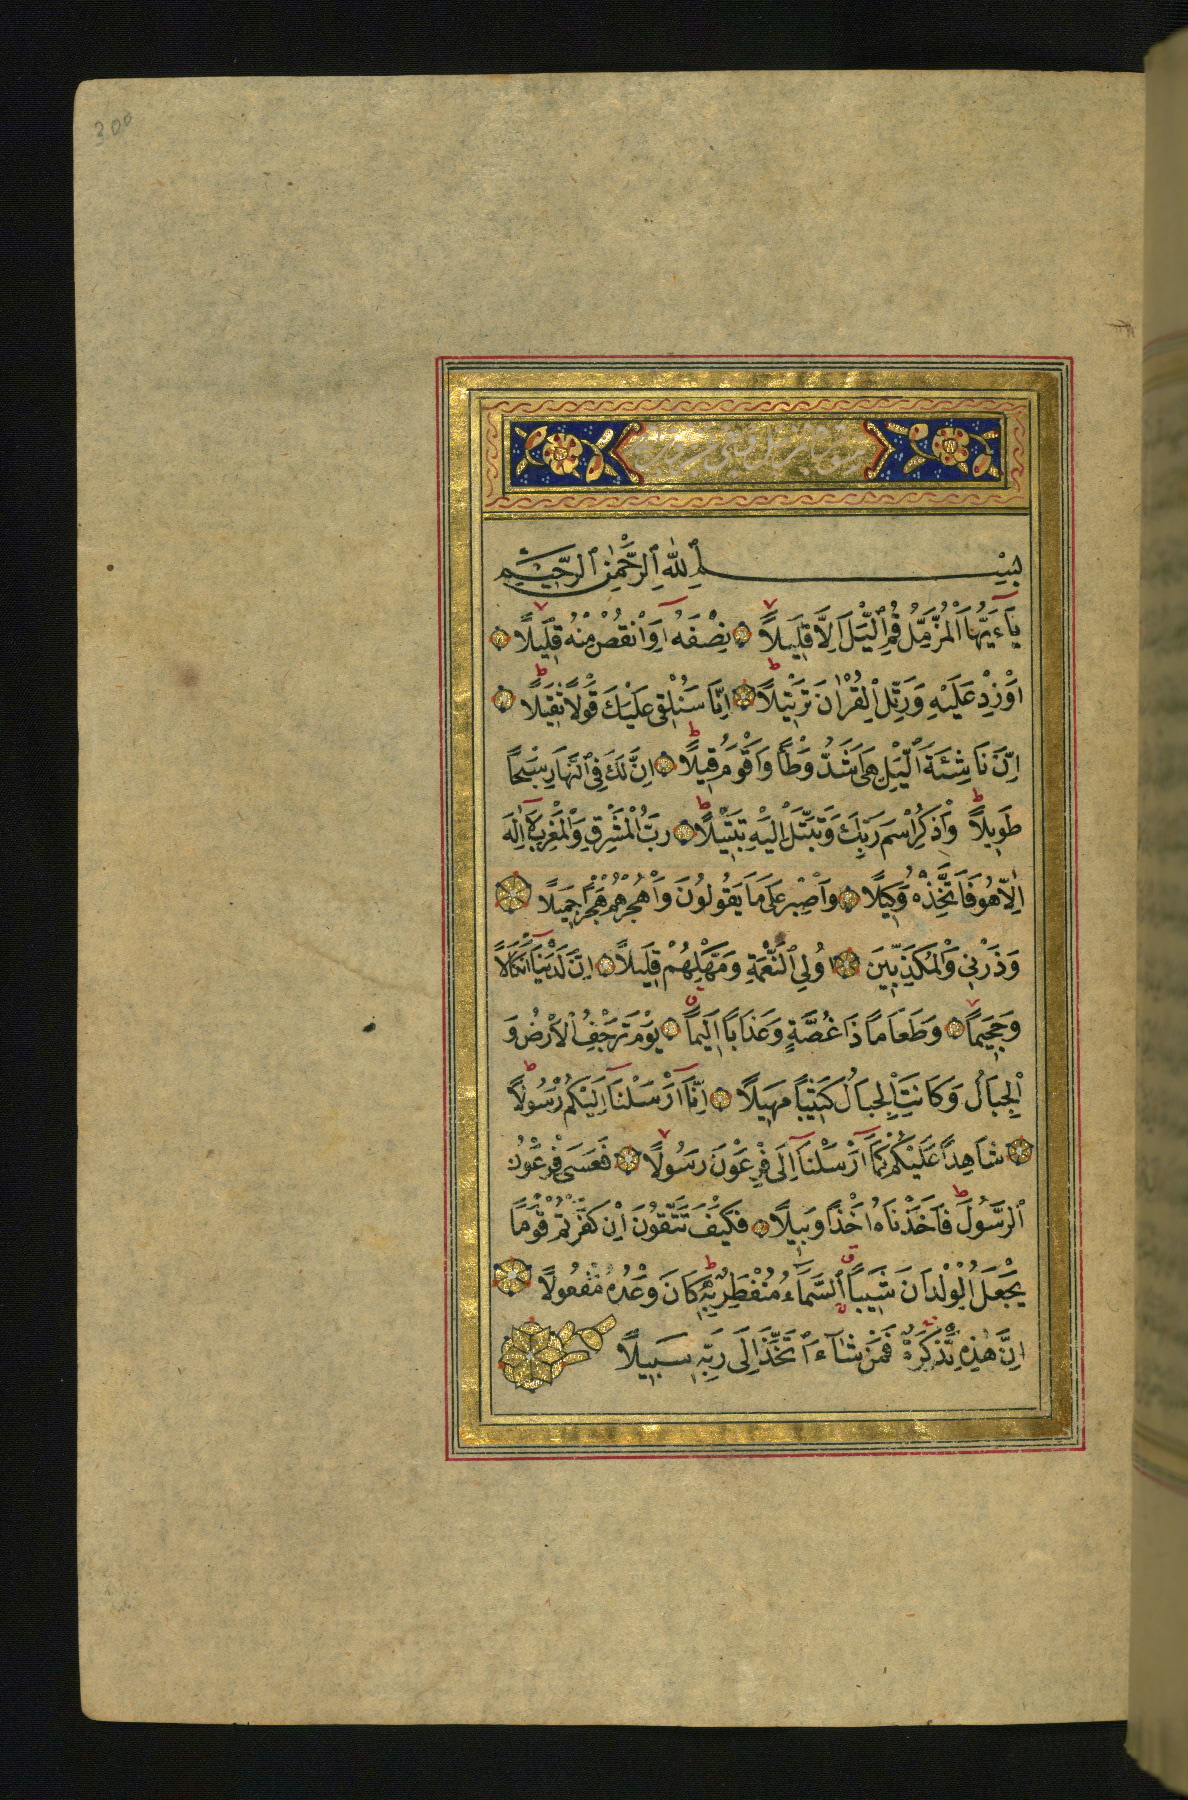 300
بِسْمِ اللّٰهِ الرَّحْمٰنِ الرَّحِيمِ
يَاءَيُّهَا الْمُزَّمِّلُ قُمِ الَّيْلَ اِلَّا قَلِيلًا نِصْفَهُ اَوِ انْقُصْ مِنْهُ قَلِيلًا
اَوْ زِدْ عَلَيْهِ وَرَتِّلِ الْقُرْاٰنَ تَرْتِيلًا اِنَّا سَنُلْقِى عَلَيْكَ قَوْلًا ثَقِيلًا
اِنَّ نَاشِئَةَ الَّيْلِ هِىَ اَشَدُّ وَطْأً وَاَقْوَمُ قِيلًا اِنَّ لَكَ فِى النَّهَارِ سَبْحًا
طَوِيلًا وَاذْكُرِ اسْمَ رَبِّكَ وَتَبَتَّلْ اِلَيْهِ تَبْتِيلًا رَبُّ الْمَشْرِقِ وَالْمَغْرِبِ لَا اِلٰهَ
اِلَّا هُوَ فَاتَّخِذْهُ وَكِيلًا وَاصْبِرْ عَلَى مَا يَقُولُونَ وَاهْجُرْهُمْ هَجْرًا جَمِيلًا
وَذَرْنِى وَالْمُكَذِّبِينَ اُولِى النَّعْمَةِ وَمَهِّلْهُمْ قَلِيلًا اِنَّ لَدَيْنَا اَنْكَالًا
وَجَحِيمًا وَطَعَامًا ذَا غُصَّةٍ وَعَذَابًا اَلِيمًا يَوْمَ تَرْجُفُ الْاَرْضُ وَ
الْجِبَالُ وَكَانَتِ الْجِبَالُ كَثِيبًا مَهِيلًا اِنَّا اَرْسَلْنَا اِلَيْكُمْ رَسُولًا
شَاهِدًا عَلَيْكُمْ كَمَا اَرْسَلْنَا اِلَى فِرْعَوْنَ رَسُولًا فَعَصَى فِرْعَوْنُ
الرَّسُولَ فَاَخَذْنَاهُ اَخْذًا وَبِيلًا فَكَيْفَ تَتَّقُونَ اِنْ كَفَرْتُمْ يَوْمًا
يَجْعَلُ الْوِلْدَانَ شِيبًا السَّمَاءُ مُنْفَطِرٌ بِهِ كَانَ وَعْدُهُ مَفْعُولًا
اِنَّ هٰذِهِ تَذْكِرَةٌ فَمَنْ شَاءَ اتَّخَذَ اِلَى رَبِّهِ سَبِيلًا